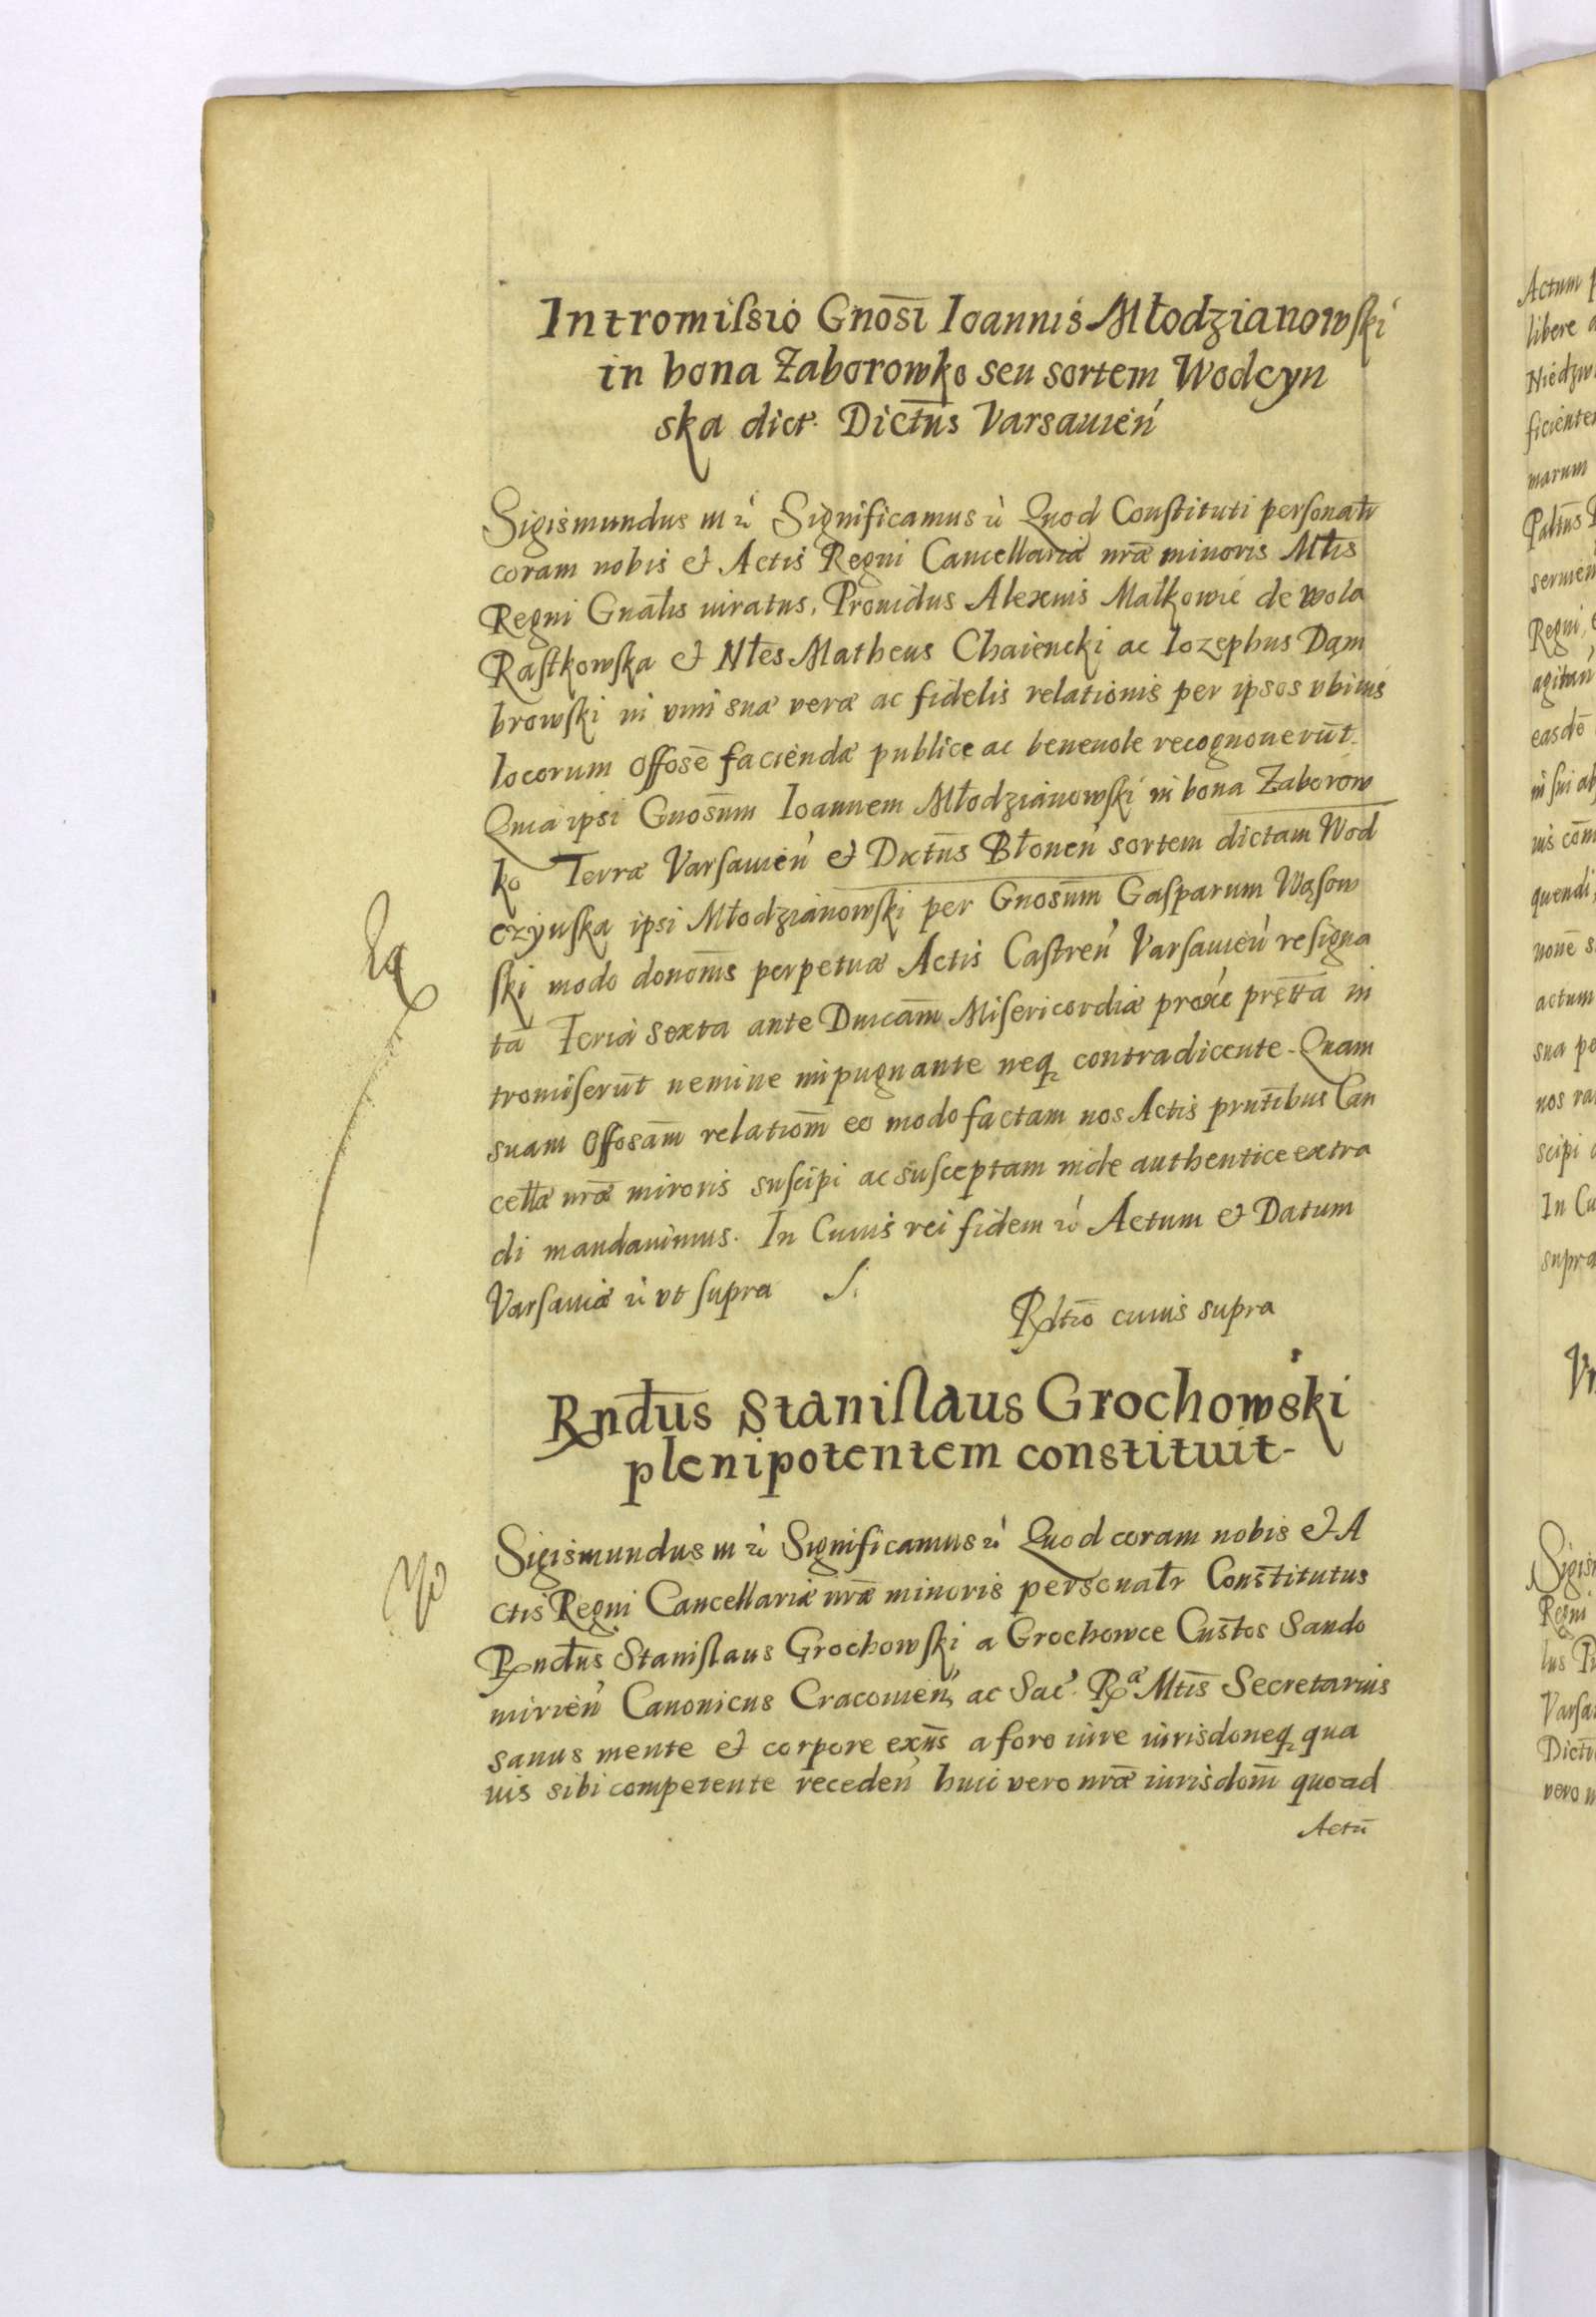 Intromissio Gnosi Ioannis Młodzianowski
in bona Zaborowko seu sortem Wodcyn
ska dict. Dictus Varsauień
Sigismundus III &c Significamus &c Quod Constituti personalr
coram nobis et Actis Regni Cancellariæ nræ minoris Mtis
Regni Gnalis iuratus, Prouidus Alexius Małkowie de wola
Rastkowska et Nles Matheus Chaiencki ac Iozephus Dąm
browski in vim suæ veræ ac fidelis relationis per ipsos vbiuis
locorum offose faciendæ publice ac beneuole recognouerut.
Quia ipsi Gnosum Ioannem Młodzianowski in bona Zaborow
ko Terræ Varsauień et Dictus Błoneń sortem dictam Wod
czynska ipsi Młodzianowski per Gnosum Gasparum Wąsow
ski modo donoms perpetuæ Actis Castreń Varsauień resigna
ta Feria sexta ante Dnicam Misericordiæ proxe prętta in
tromiserut nemine impugnante neq contradicente. Quam
suam offosam relatiom eo modo factam nos Actis prntibus Can
cellæ nræ minoris suscipi ac susceptam inde authentice extra
di mandauimus. In Cuius rei fidem &c Actum et Datum
Varsauiæ &c vt supra
Rltio cuius supra
Rndus Stanislaus Grochowski
plenipotentem constituit-
Sigismundus III &c Significamus &c Quod coram nobis et A
ctis Regni Cancellariæ nræ minoris personalr Constitutus
Rndus Stanislaus Grochowski a Grochowce Custos Sando
mirień Canonicus Cracouień, ac Sac. Ræ Mtis Secretarius
sanus mente et corpore exns a foro iure iurisdoneq qua
uis sibi competente recedeń huic vero nræ iurisdom quoad
Actu